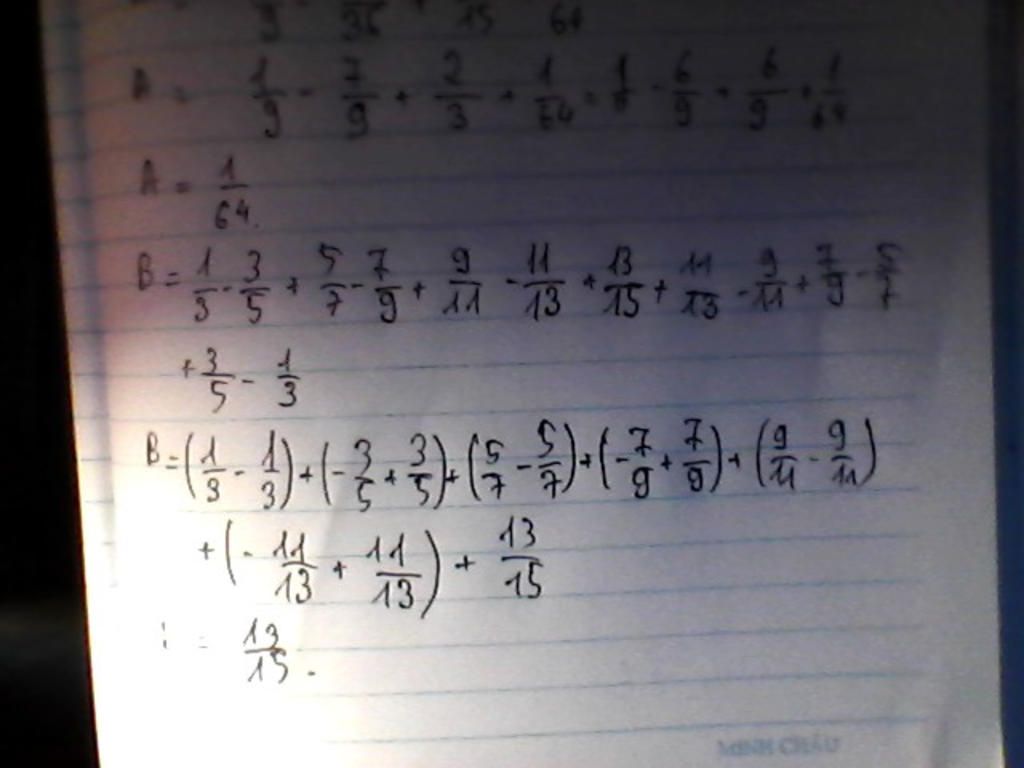 A = 1/9 - 7/9 + 2/3 + 1/64 = 1/9 - 6/9 + 6/9 + 1/64
A = 1/64.
B = 1/3 - 3/5 + 5/7 - 7/9 + 9/11 - 11/13 + 13/15 + 11/13 - 9/11 + 7/9 - 5/7
+ 3/5 - 1/3
B = (1/3 - 1/3) + (-3/5 + 3/5) + (5/7 - 5/7) + (-7/9 + 7/9) + (9/11 - 9/11)
+ (-11/13 + 11/13) + 13/15
= 13/15.
MINH CHÂU